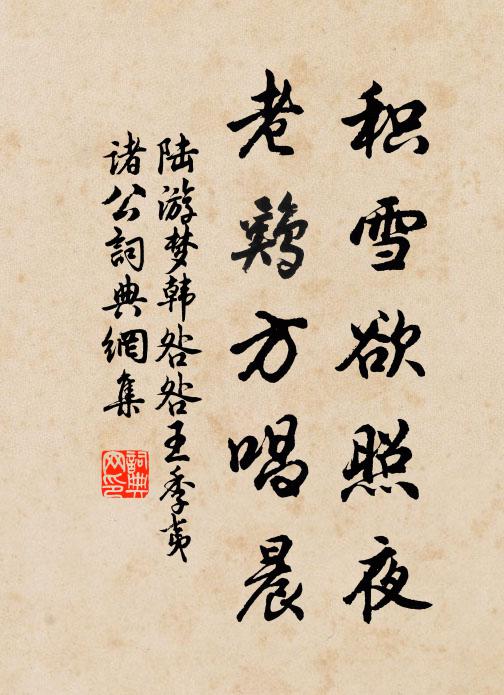 积雪欲照夜
老鷄方唱晨
陆游梦韩咎咎王季夷
诸公詞典網集
詞典
网印